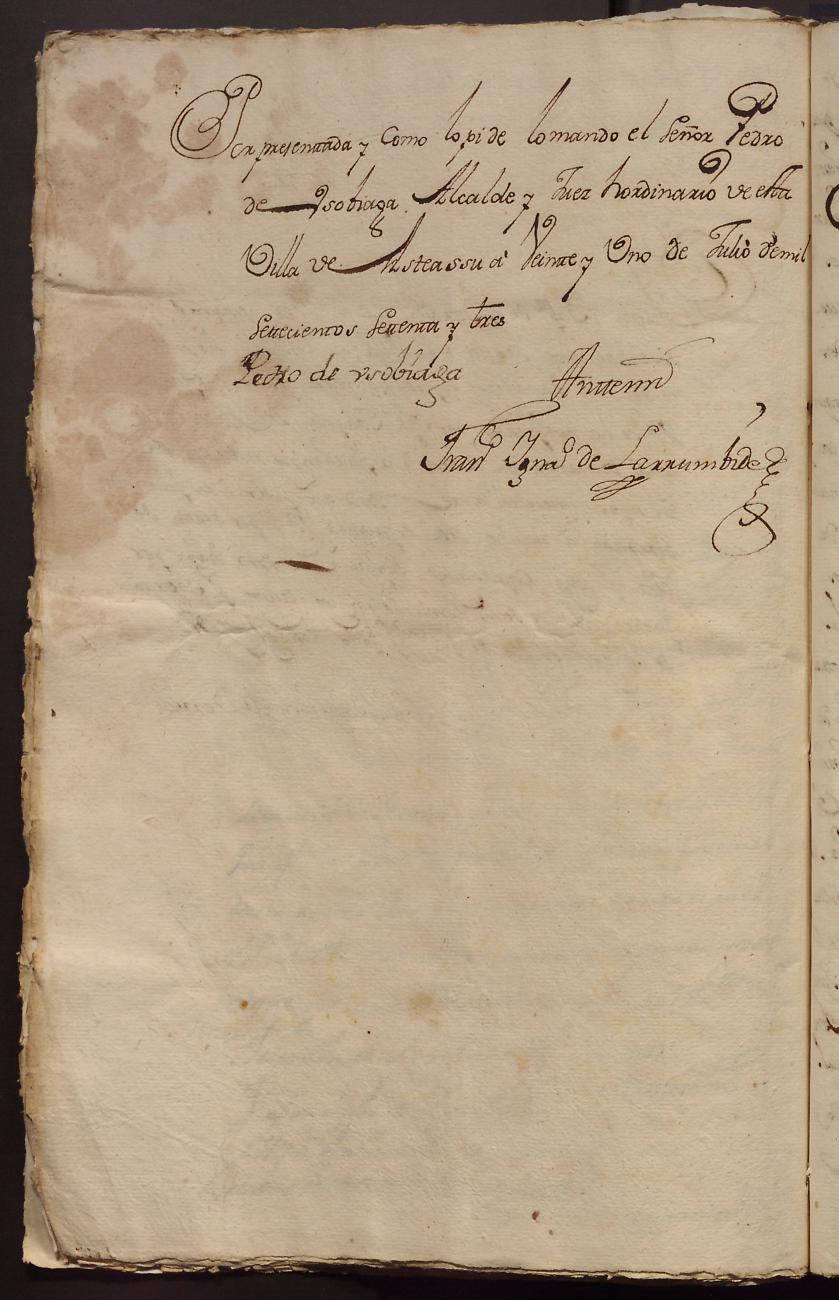 Por presentada y Como lo pide lo mando el Señor Pedro
de Ysobiaga Alcalde y Juez hordinario de esta
Villa de Asteassu a Veinte y Uno de Julio de mil
settecientos settenta y tres
Pedro de ysobiaga Anttemi
Franco Ignao de Larrumbide